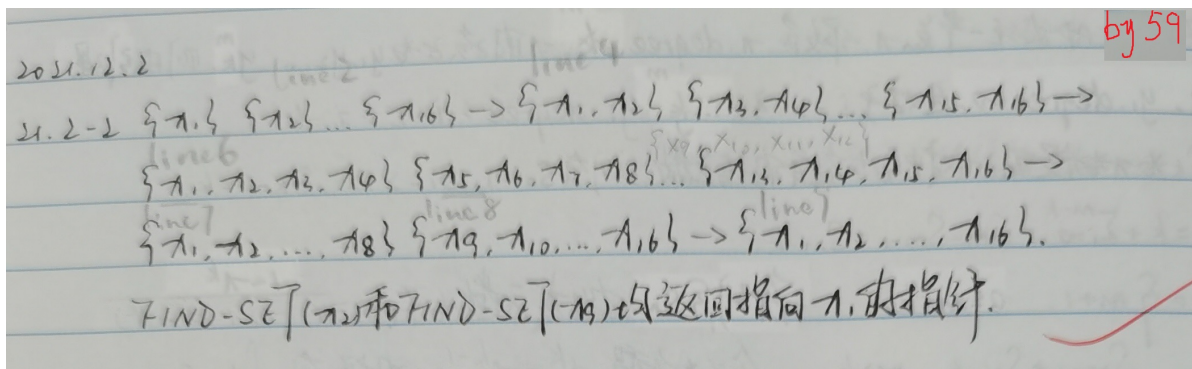 by 59
2021.12.2
line2 line4
21.2-2 {x1} {x2}... {x16} → {x1, x2} {x3, x4}... {x15, x16} →
line6 {x9, x10, x11, x12}
{x1, x2, x3, x4} {x5, x6, x7, x8}... {x13, x14, x15, x16} →
line7 line8 line7
{x1, x2, ..., x8} {x9, x10, ..., x16} → {x1, x2, ...., x16}.
FIND-SET(x2)和FIND-SET(x9)均返回指向x1的指针.